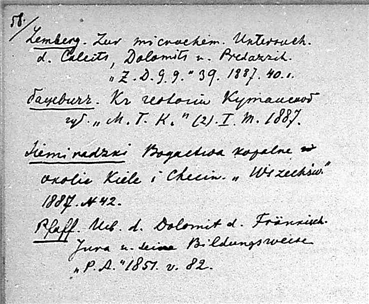 58.
Lemberg. Zur microchem. Untersuch.
d. Calcits, Dolomits u. Predazzit.
"Z. D. g. G." 39. 1887. 40. I.
Гасуburg. Кг геологіи Кутаисской
губ. "М. Г. К." (2). I. м. 1887.
Siemiradzki Bogactwa kopalne w
okolic Kielc i Chęcin. "Wszechśw."
1887. N 42.
Pfaff. Ueb. d. Dolomit d. Fränkisch.
Jura u. seine Bildungsweise
"P. A." 1851. v. 82.